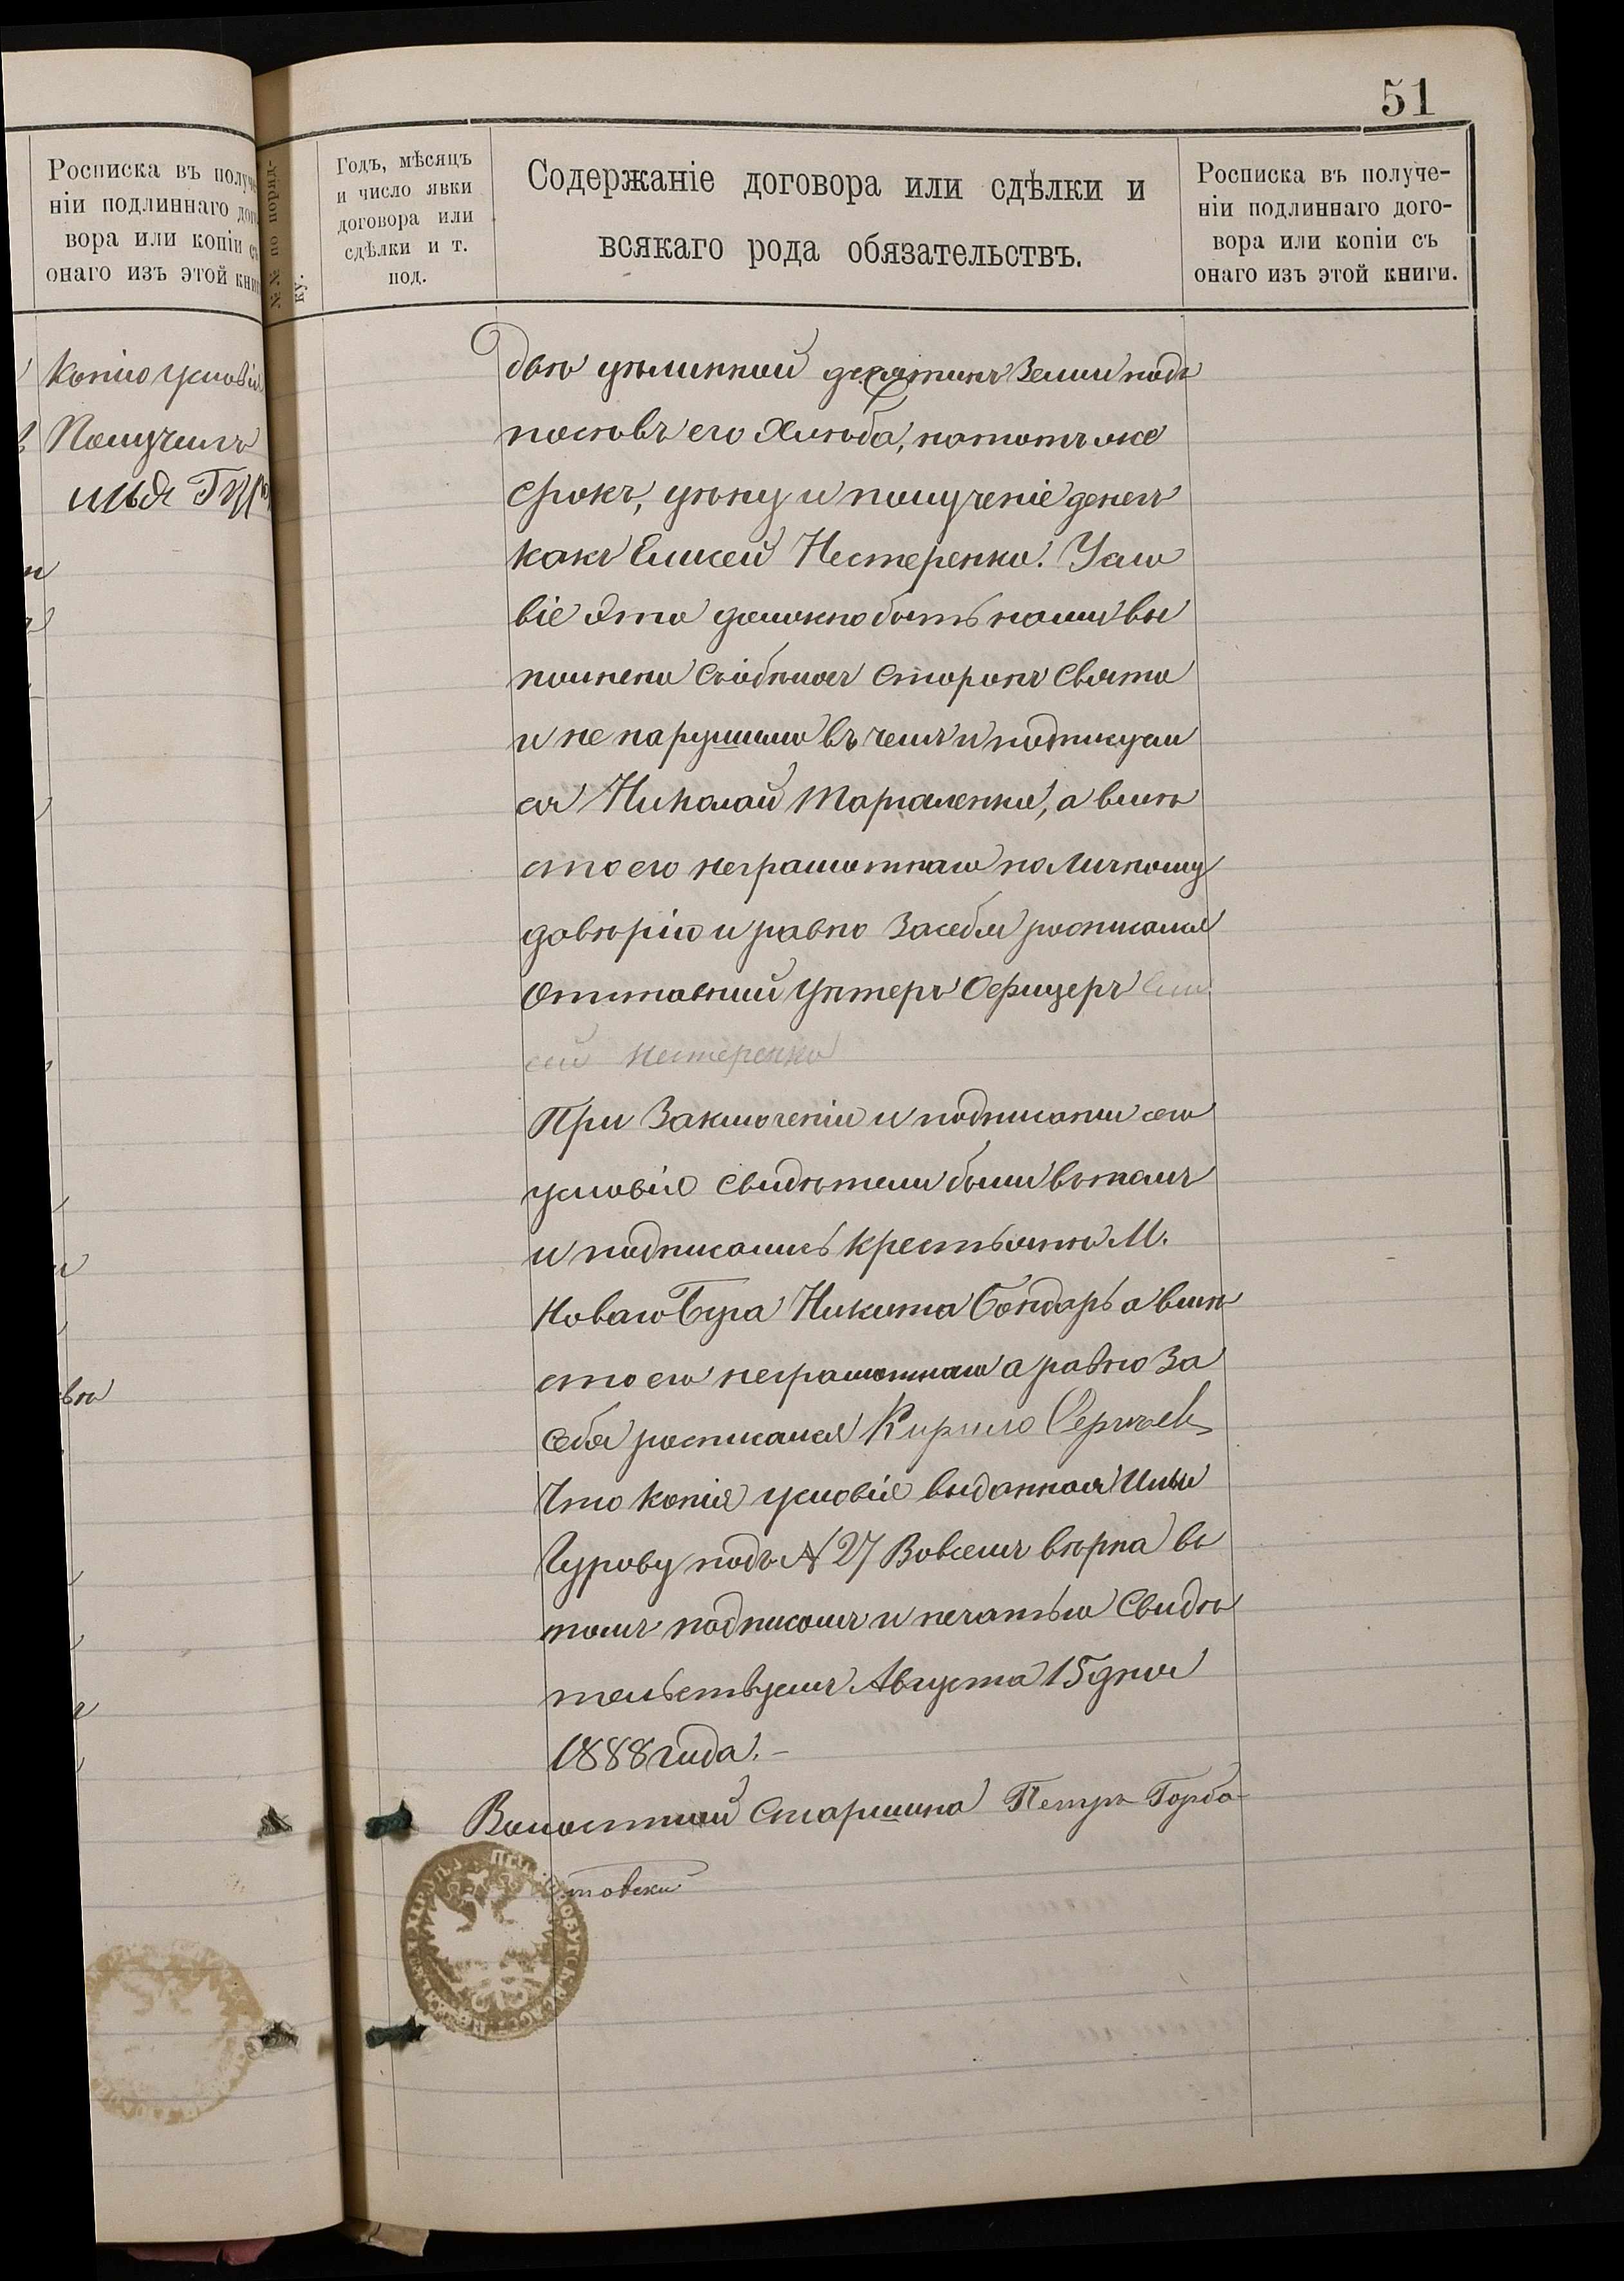 51
Росписка въ получе-
ніи подлиннаго дого-
вора или копіи съ
онаго изъ этой кни
Копію условія
Получилъ
Илья
№№ по поряд-
ку.
Годъ, мѣсяцъ
и число явки
договора или
сдѣлки и т.
под.
Содержаніе договора или сдѣлки и
всякаго рода обязательствъ.
Росписка въ получе-
ніи подлиннаго дого-
вора или копіи съ
онаго изъ этой книги.
двѣ цѣлинной десятинъ Земли подъ
посѣвъ его Хлѣба, натотъ же
срокъ, цѣну и полученіе денегъ
какъ Елисей Нестеренко. Усло
віе это должно быть нами вы
полнено съобѣихъ сторонъ Свято
и не нарушимо въ чемъ и подписуем
ся Николай, а вмѣ
сто его неграмотнаго по Личному
довѣрію и равно Засебя росписался
Отставный Унтеръ Офицеръ Ели
сей Нестеренко
При Заключеніи и подписаніи сего
условія свидѣтели были вътомъ
и подписались Крестьяне М.
Новаго Буга Никита Бондарь а вмѣ
сто его неграмотнаго а равно За
себя росписался Кирило Сергѣевъ
Что копія условія выданная Ильи
Гурову подъ № 27 Вовсемъ вѣрна въ
томъ подписомъ и печатью Свидѣ
тельствуемъ Августа 15 дня
1888 года. –
Волостной Старшина Петръ Горба
товски